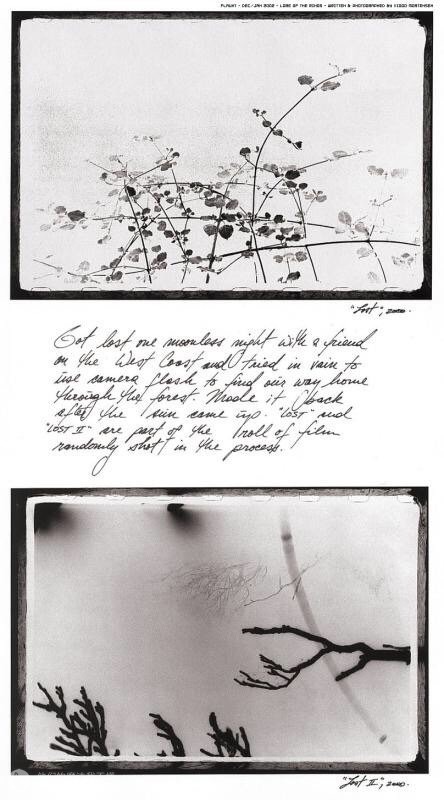 FLAUNT - DEC/JAN 2002 - LORE OF THE RINGS - WRITTEN & PHOTOGRAPHED BY VIGGO MORTENSEN
"Lost", 2000.
Got lost one moonless night with a friend
on the West Coast and tried in vain to
use camera flash to find our way home
through the forest. Made it back
after the sun came up. "LOST" and
"LOST II" are part of the roll of film
randomly shot in the process.
"Lost II", 2000.